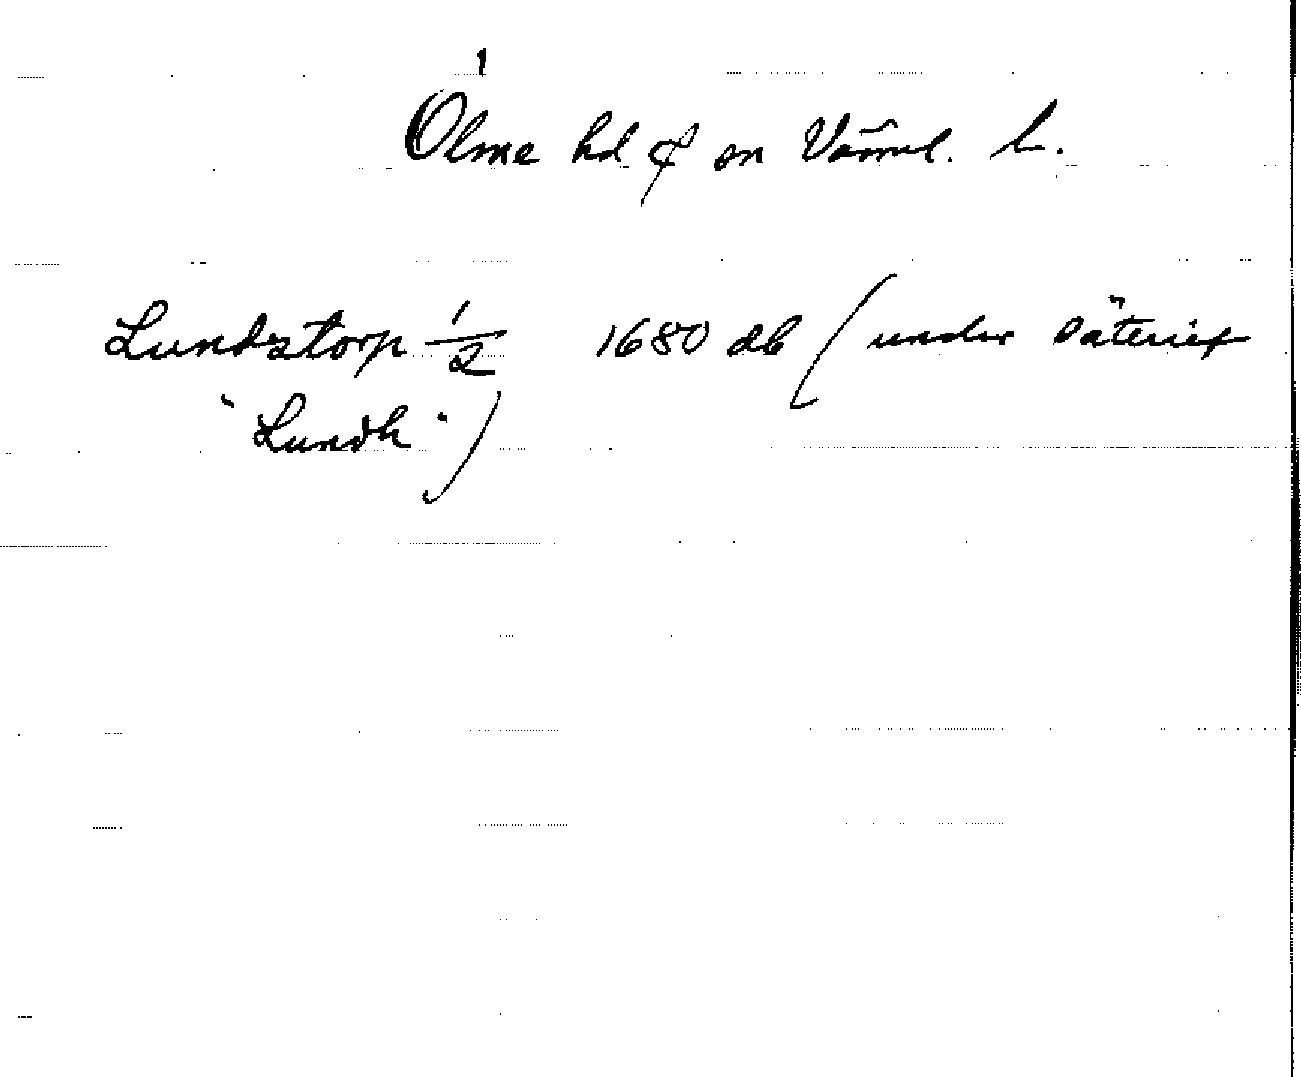 1
Ölme hd & sn Värml. L.
Lundstorp 1/2 1680 db (under säteriet
"Lundh")